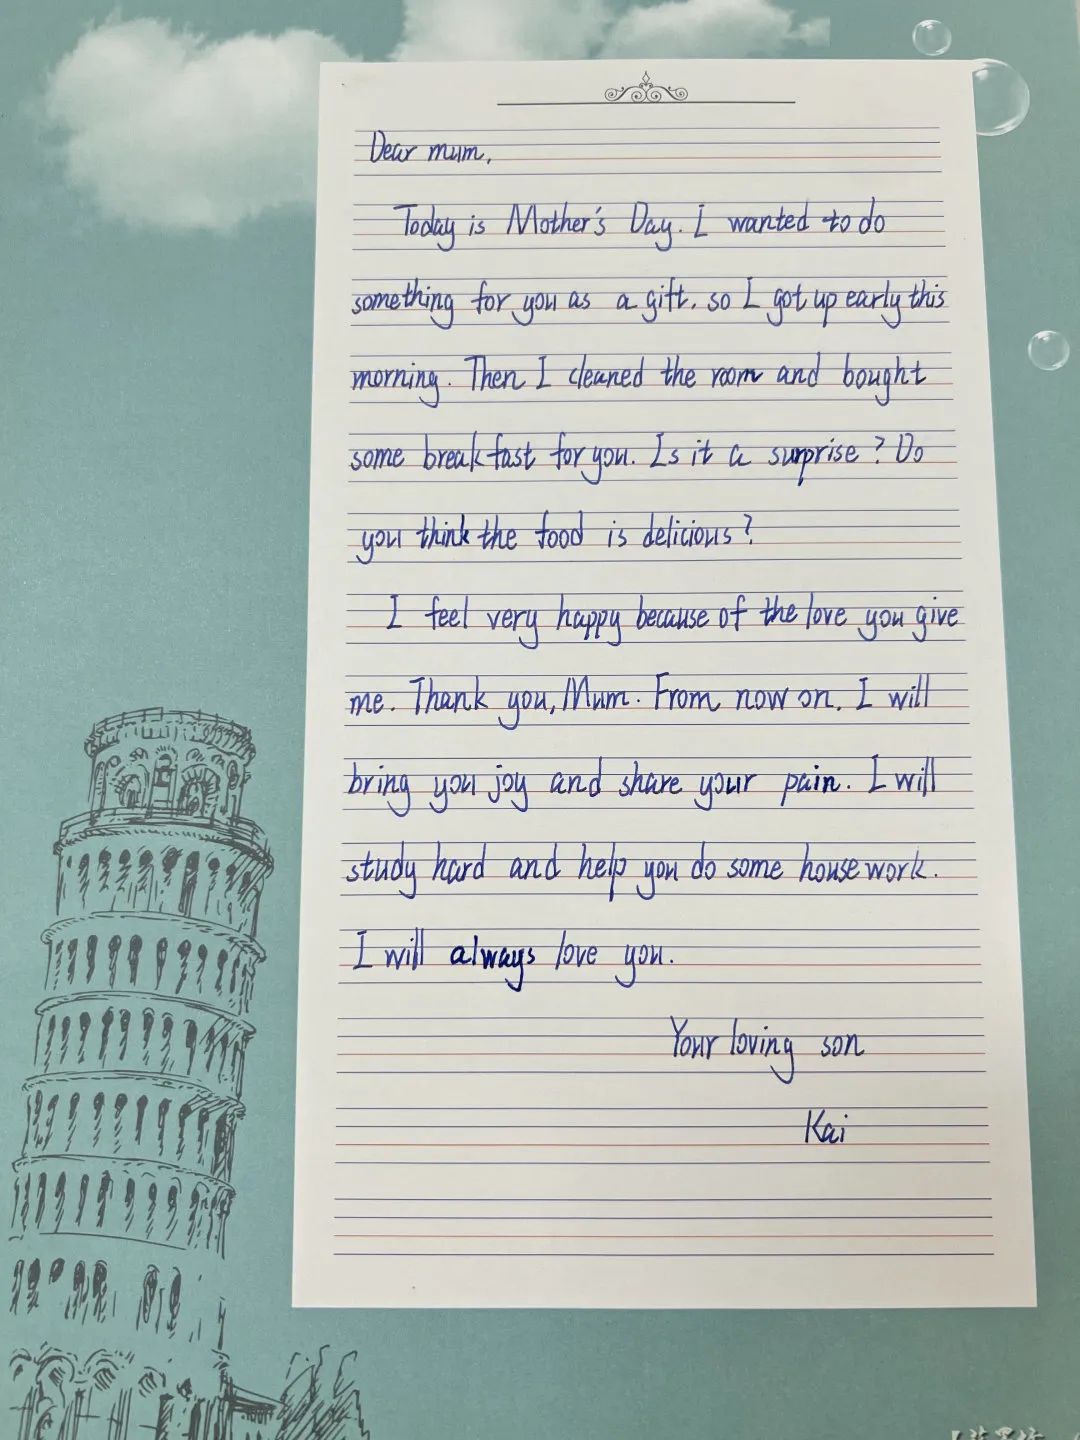 Dear mum,
Today is Mother's Day. I wanted to do
something for you as a gift, so I got up early this
morning. Then I cleaned the room and bought
some breakfast for you. Is it a surprise? Do
you think the food is delicious?
I feel very happy because of the love you give
me. Thank you, Mum. From now on, I will
bring you joy and share your pain. I will
study hard and help you do some housework.
I will always love you.
Your loving son
Kai